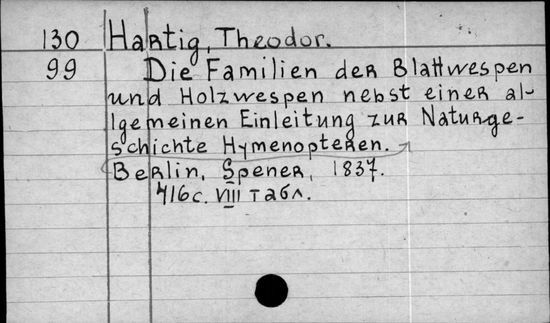 130 Hartig, Theodor.
99 Die Familien der Blattwespen
und Holzwespen nebst einer al-
lgemeinen Einleitung zur Naturge-
schichte Hymenopteren.
Berlin, Spener, 1837.
416 с. VIII табл.